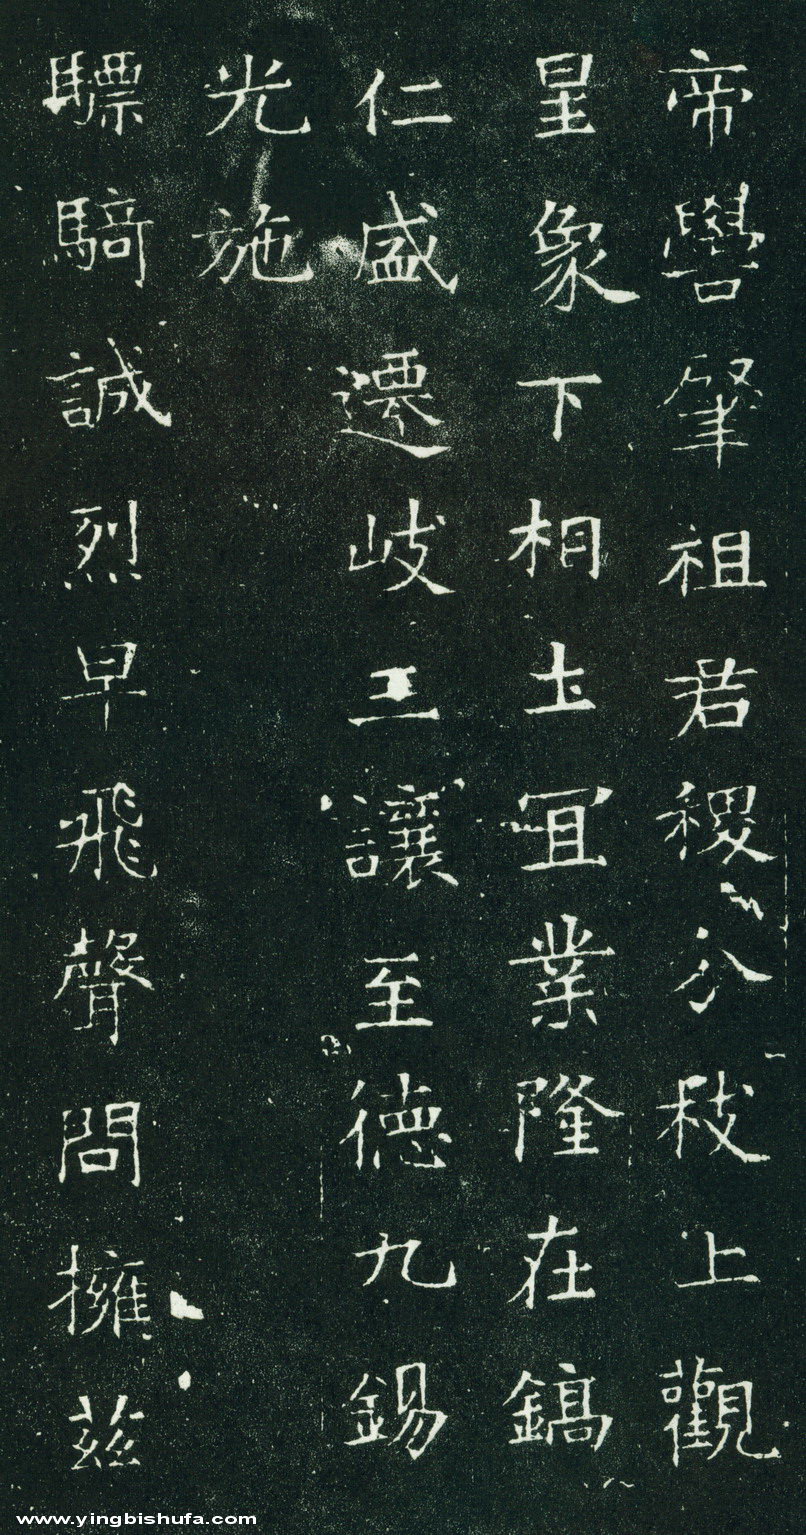 帝嚳肇祖君稷分秡上觀
星象下相土宜業隆在鎬
仁盛遷岐三讓至德九錫
光施
驃騎誠烈早飛聲問擁茲
www.yingbishufa.com